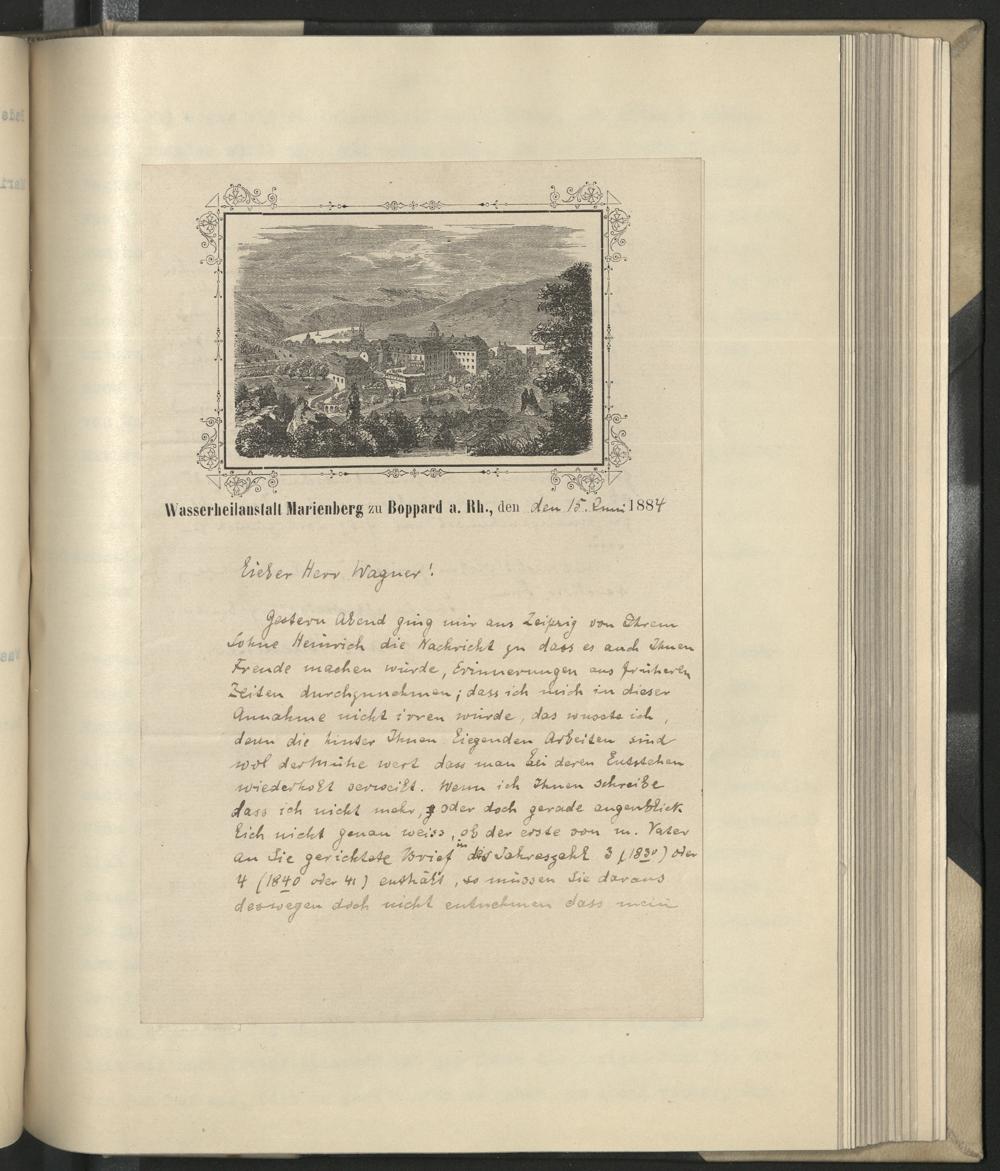 Wasserheilanstalt Marienberg zu Boppard a. Rh., den den 15. Juni 1884
Lieber Herr Wagner!
Gestern Abend ging mir aus Leipzig von Ihrem
Sohne Heinrich die Nachricht zu dass es auch Ihnen
Freude machen würde, Erinnerungen aus früheren
Zeiten durchzunehmen; dass ich mich in dieser
Annahme nicht irren würde, das wusste ich,
denn die hinter Ihnen liegenden Arbeiten sind
wol der Mühe wert dass man bei deren Entstehen
wiederholt verweilt. Wenn ich Ihnen schreibe
dass ich nicht mehr, oder doch gerade augenblick
lich nicht genau weiss, ob der erste von m. Vater
an Sie gerichtete Brief in der Jahreszahl 3 (1830) oder
4 (1840 oder 41) enthält, so müssen Sie daraus
deswegen doch nicht entnehmen dass mein